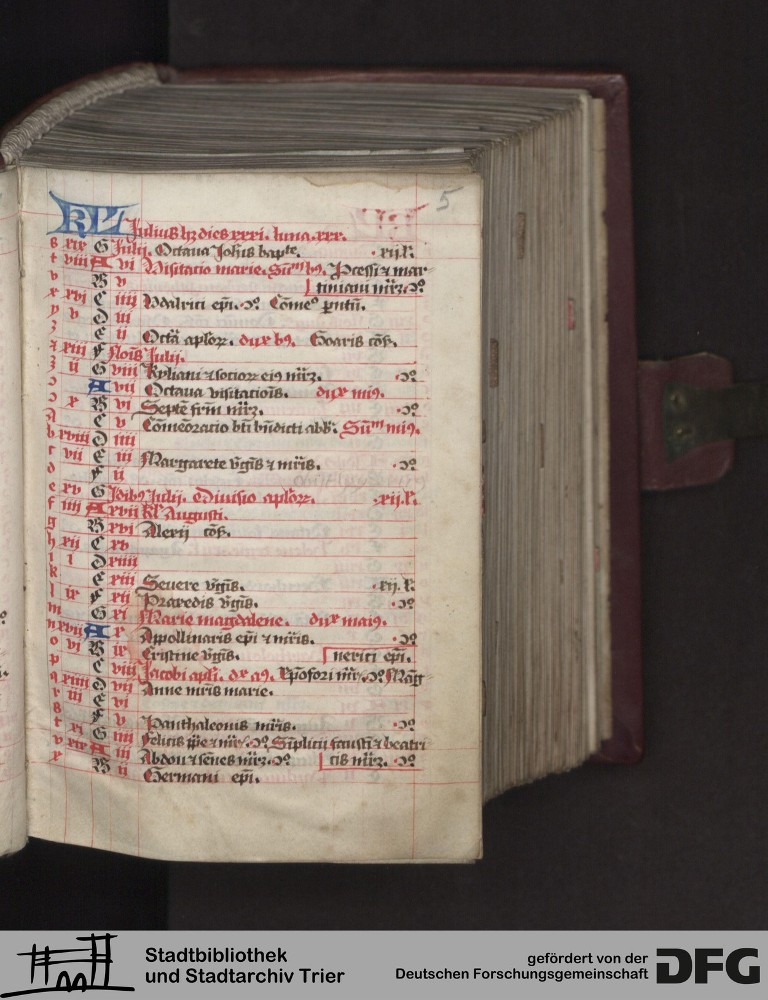 5
KL Julius hʒ dies xxxi. luna. xxx.
g xix G Julij. Octaua Johis bapte. xij.l.
t viii A vi Visitacio marie. Sum̄ b9. Pcessi ⁊ mar
v B v tiniani mr̄ʒ.
x xvi C iiii Vdalrici epi. Come° pntū.
y v D iii
z E ii Octā aplorꝝ. dux b9. Goaris cōf.
xiii F Nois Julij.
ii G viii Kyliani ⁊ socioꝝ ei9 mr̄ʒ.
A vii Octaua visitacois. dux mi9.
x B vi Septē frm̄ mr̄ʒ.
A C v Comeoracio bti bn̄dicti abb. Sum̄ mi9.
b xviii D iiii
c vii E iii Margarete vgīs ⁊ mr̄is.
d F ii
e xv G Idib9 Julij. Diuisio aplorꝝ. xij.l.
f iiii A xvii kl Augusti.
g B xvi Alexij cōf.
h xii C xv
i i D xiiii
k E xiii Seuere vgīs. xij.l.
l ix F xii Praxedis vgīs.
m G xi Marie magdalene. dux mai9.
n xvii A x Appollinaris epi ⁊ mr̄is.
o vi B ix Cristine vgīs. nerici epi.
p C viii Jacobi apli. dx a9. Xpofori mr̄. Mag
q xiiii D vii Anne mr̄is marie.
r iii E vi
s F v Panthaleonis mr̄is.
t xi G iiii Felicis ppe ⁊ mr̄. Simplicii faustī ⁊ beatri
v xix A iii Abdon ⁊ senes mr̄ʒ. cis mr̄ʒ.
x B ii Germani epi.
Stadtbibliothek
und Stadtarchiv Trier
gefördert von der
Deutschen Forschungsgemeinschaft
DFG